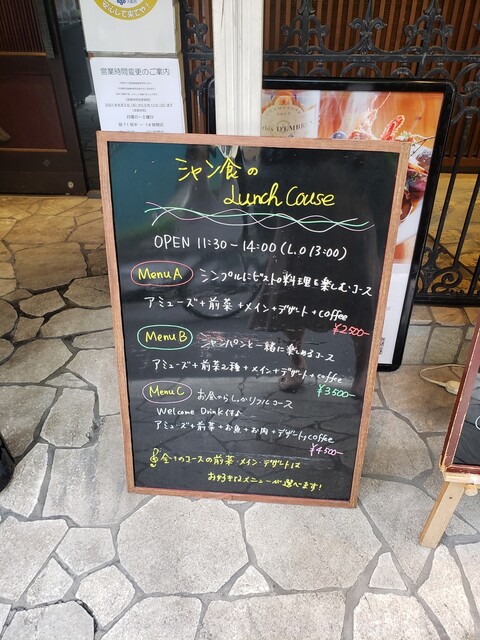 安心して来てや!
営業時間変更のご案内
シャン食の
Lunch Couse
OPEN 11:30-14:00 (L.O 13:00)
Menu A シンプルにビストロ料理を楽しむコース
アミューズ+前菜+メイン+デザート+coffee
¥2500-
Menu B シャンパンと一緒に楽しめるコース
アミューズ+前菜2種+メイン+デザート+coffee
¥3500-
Menu C お昼からしっかりフルコース
Welcome Drink付♪
アミューズ+前菜+お魚+お肉+デザート+coffee
¥4500-
全てのコースの前菜・メイン・デザートは
お好きなメニューが選べます!